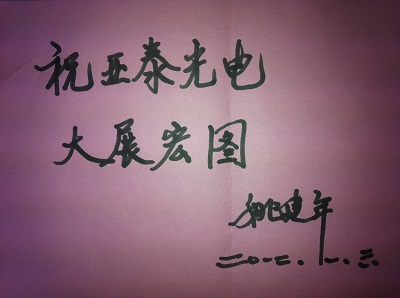 祝亚泰光电
大展宏图
姚建年
二〇一二、十一、六